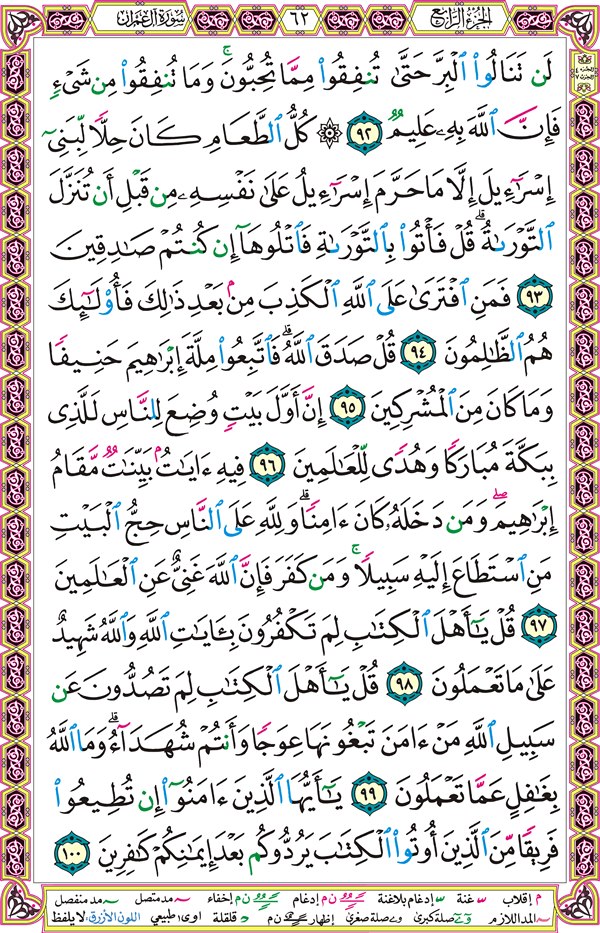 الجزء الرابع ٦٢ سورة آل عمران
لَن تَنَالُوا۟ ٱلْبِرَّ حَتَّىٰ تُنفِقُوا۟ مِمَّا تُحِبُّونَ ۚ وَمَا تُنفِقُوا۟ مِن شَىْءٍ
فَإِنَّ ٱللَّهَ بِهِۦ عَلِيمٌ ٩٢ ۞ كُلُّ ٱلطَّعَامِ كَانَ حِلًّا لِّبَنِىٓ
إِسْرَٰٓءِيلَ إِلَّا مَا حَرَّمَ إِسْرَٰٓءِيلُ عَلَىٰ نَفْسِهِۦ مِن قَبْلِ أَن تُنَزَّلَ
ٱلتَّوْرَىٰةُ ۗ قُلْ فَأْتُوا۟ بِٱلتَّوْرَىٰةِ فَٱتْلُوهَآ إِن كُنتُمْ صَٰدِقِينَ
٩٣ فَمَنِ ٱفْتَرَىٰ عَلَى ٱللَّهِ ٱلْكَذِبَ مِنۢ بَعْدِ ذَٰلِكَ فَأُو۟لَٰٓئِكَ
هُمُ ٱلظَّٰلِمُونَ ٩٤ قُلْ صَدَقَ ٱللَّهُ ۗ فَٱتَّبِعُوا۟ مِلَّةَ إِبْرَٰهِيمَ حَنِيفًا
وَمَا كَانَ مِنَ ٱلْمُشْرِكِينَ ٩٥ إِنَّ أَوَّلَ بَيْتٍ وُضِعَ لِلنَّاسِ لَلَّذِى
بِبَكَّةَ مُبَارَكًا وَهُدًى لِّلْعَٰلَمِينَ ٩٦ فِيهِ ءَايَٰتٌۢ بَيِّنَٰتٌ مَّقَامُ
إِبْرَٰهِيمَ ۖ وَمَن دَخَلَهُۥ كَانَ ءَامِنًا ۗ وَلِلَّهِ عَلَى ٱلنَّاسِ حِجُّ ٱلْبَيْتِ
مَنِ ٱسْتَطَاعَ إِلَيْهِ سَبِيلًا ۚ وَمَن كَفَرَ فَإِنَّ ٱللَّهَ غَنِىٌّ عَنِ ٱلْعَٰلَمِينَ
٩٧ قُلْ يَٰٓأَهْلَ ٱلْكِتَٰبِ لِمَ تَكْفُرُونَ بِـَٔايَٰتِ ٱللَّهِ وَٱللَّهُ شَهِيدٌ
عَلَىٰ مَا تَعْمَلُونَ ٩٨ قُلْ يَٰٓأَهْلَ ٱلْكِتَٰبِ لِمَ تَصُدُّونَ عَن
سَبِيلِ ٱللَّهِ مَنْ ءَامَنَ تَبْغُونَهَا عِوَجًا وَأَنتُمْ شُهَدَآءُ ۗ وَمَا ٱللَّهُ
بِغَٰفِلٍ عَمَّا تَعْمَلُونَ ٩٩ يَٰٓأَيُّهَا ٱلَّذِينَ ءَامَنُوٓا۟ إِن تُطِيعُوا۟
فَرِيقًا مِّنَ ٱلَّذِينَ أُوتُوا۟ ٱلْكِتَٰبَ يَرُدُّوكُم بَعْدَ إِيمَٰنِكُمْ كَٰفِرِينَ ١٠٠
م إقلاب غنة إدغام بلاغنة ن م إدغام ن م إخفاء مد متصل مد منفصل
المد اللازم صلة كبرى صلة صغرى إظهار ن م قلقلة اوى: طبيعي اللون الأزرق: لا يلفظ